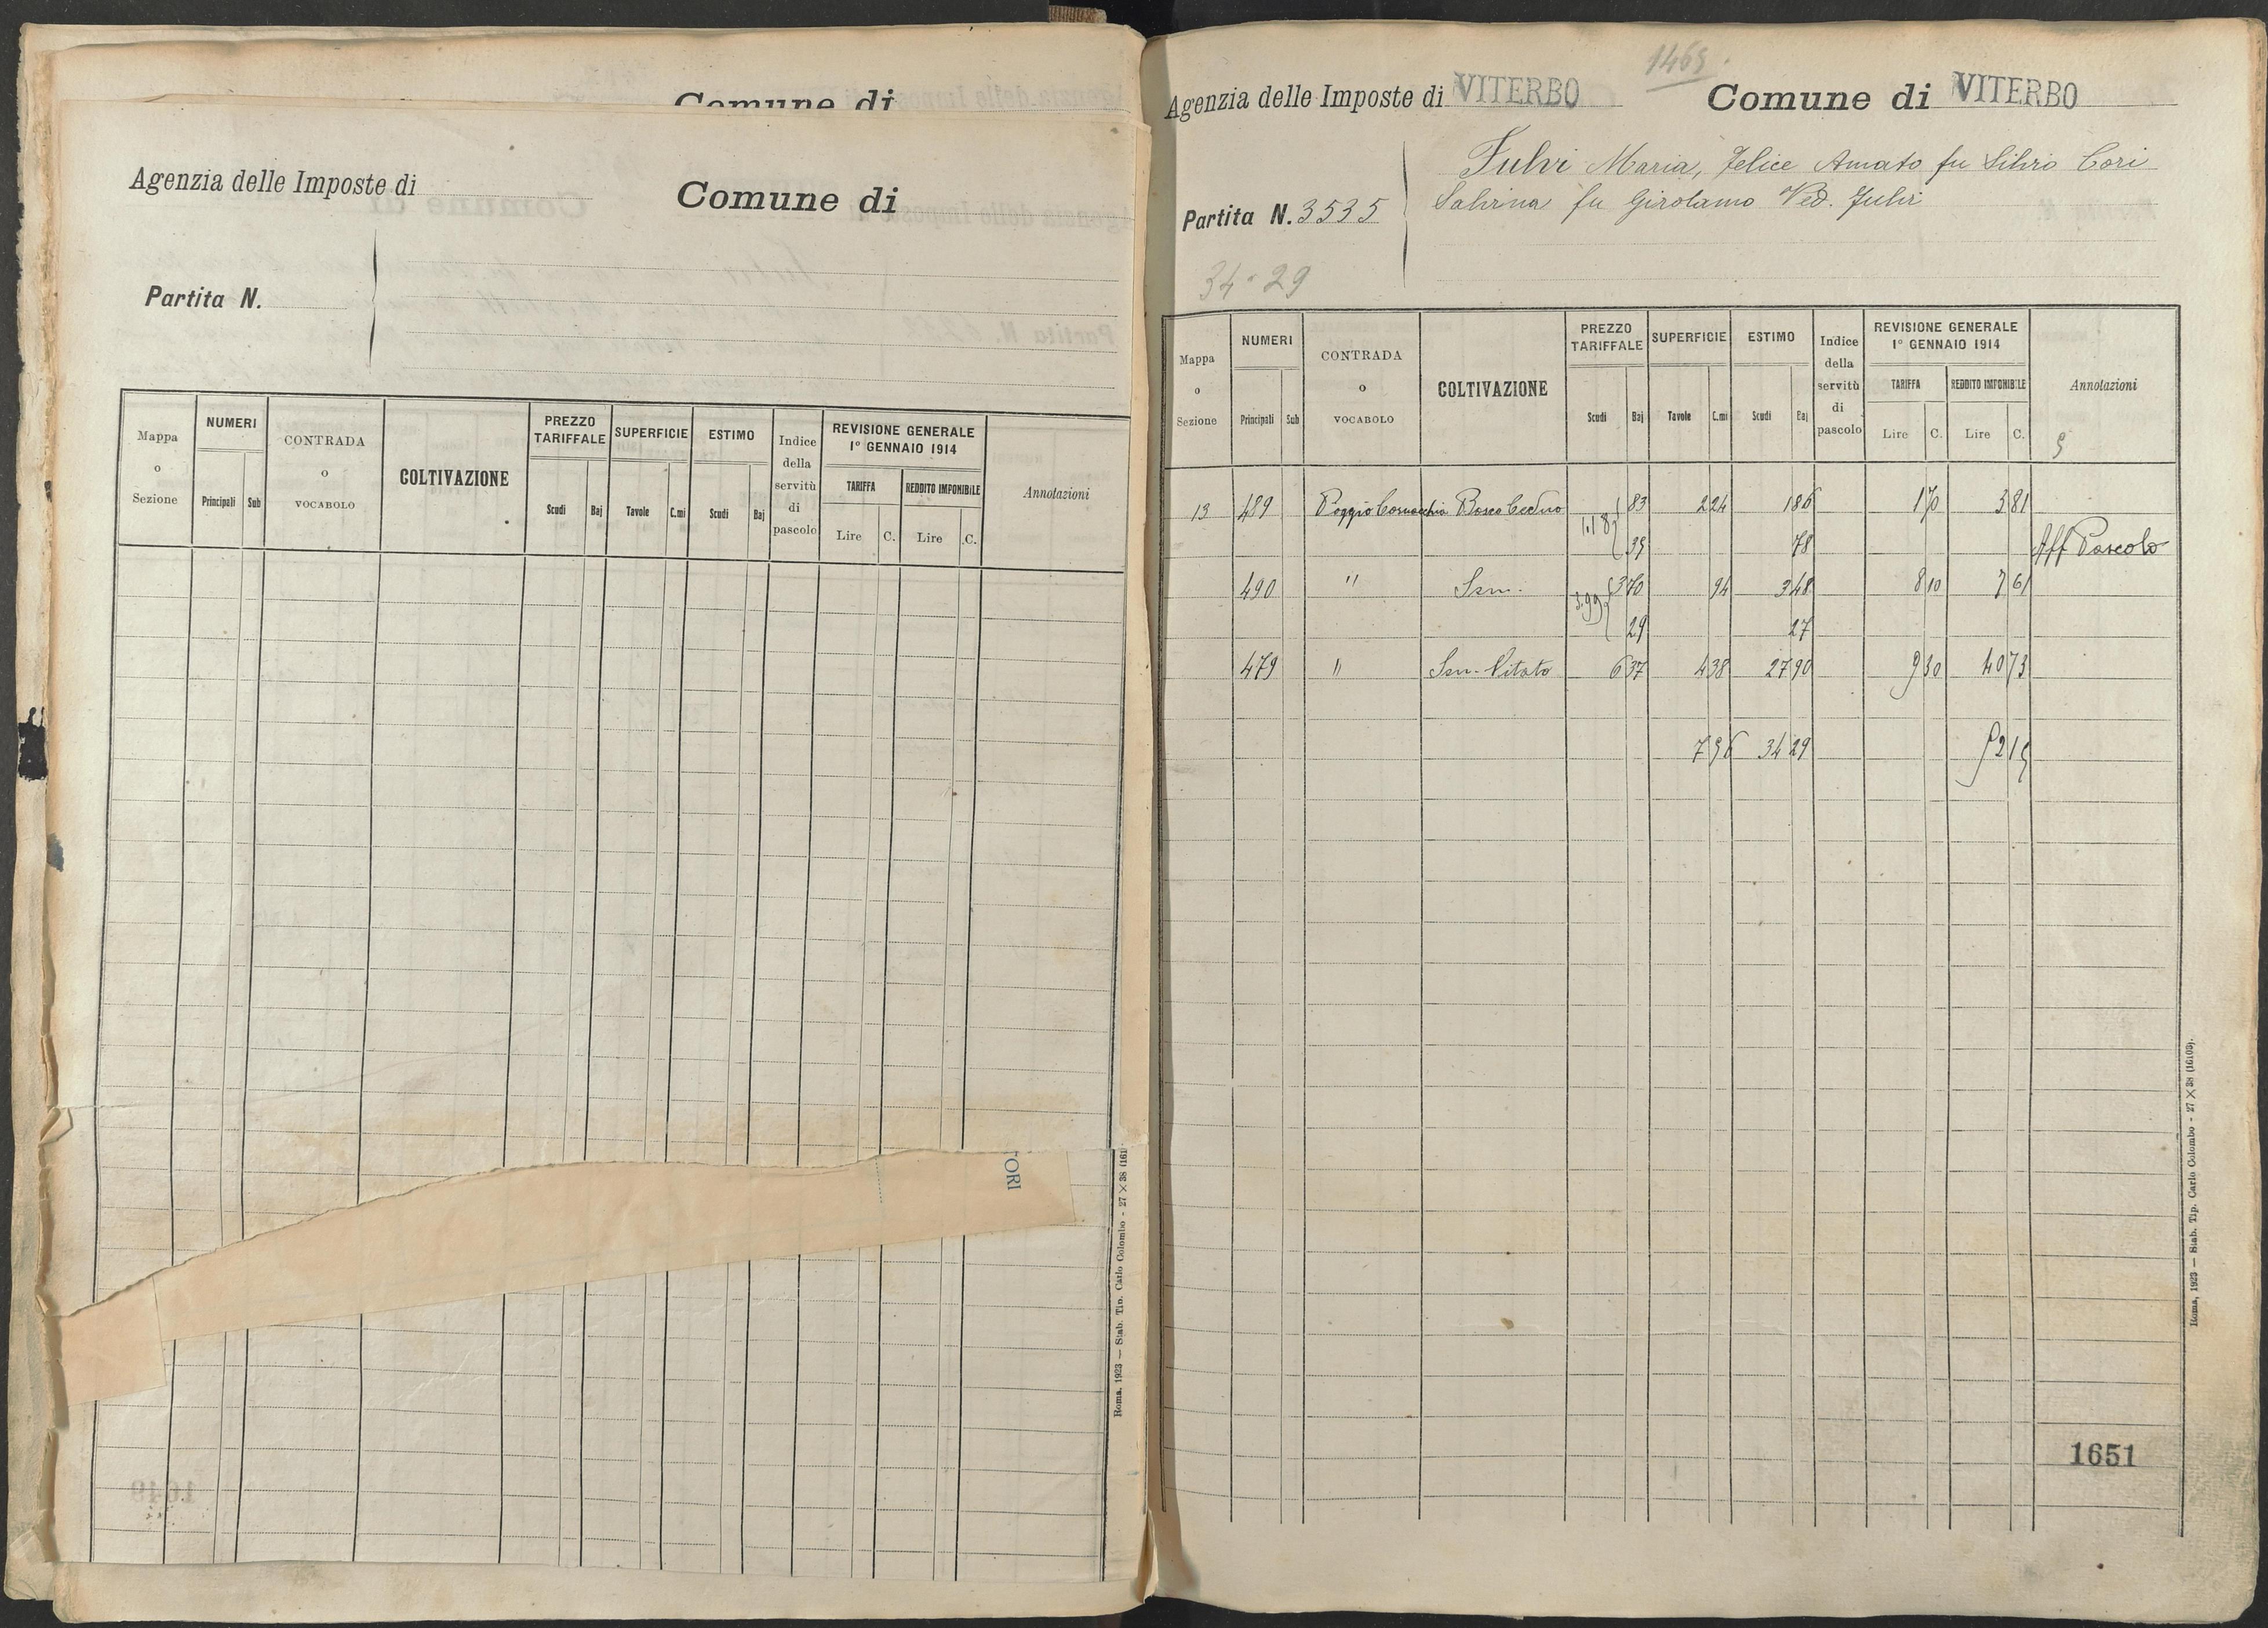 Comune di
Agenzia delle Imposte di
Comune di
Partita N.
Mappa o Sezione
NUMERI
Principali
Sub
CONTRADA o VOCABOLO
COLTIVAZIONE
PREZZO TARIFFALE
Scudi
Baj
SUPERFICIE
Tavole
C.mi
ESTIMO
Scudi
Baj
Indice della servitù di pascolo
REVISIONE GENERALE
1° GENNAIO 1914
TARIFFA
Lire
C.
REDDITO IMPONIBILE
Lire
C.
Annotazioni
TORI
Roma, 1923 — Stab. Tip. Carlo Colombo - 27 × 38 (161
1465
Agenzia delle Imposte di VITERBO
Comune di VITERBO
Partita N. 3535
Fulvi Maria, Felice Amato fu Silvio Cori
Sabrina fu Girolamo Ved. Fulvi
34-29
Mappa o Sezione
NUMERI
Principali
Sub
CONTRADA o VOCABOLO
COLTIVAZIONE
PREZZO TARIFFALE
Scudi
Baj
SUPERFICIE
Tavole
C.mi
ESTIMO
Scudi
Baj
Indice della servitù di pascolo
REVISIONE GENERALE
1° GENNAIO 1914
TARIFFA
Lire
C.
REDDITO IMPONIBILE
Lire
C.
Annotazioni
5
13 489 Poggio Cornacchia Bosco Ceduo 1.18 83 2 24 1 86 1 70 3 81
35 78 Aff Pascolo
490 " Sem. 3.99 3 70 94 3 48 8 10 7 61
29 27
479 " Sem. Vitato 6 37 4 38 27 90 9 30 40 73
7 56 34 29 52 15
Roma, 1923 — Stab. Tip. Carlo Colombo - 27 × 38 (16103).
1651